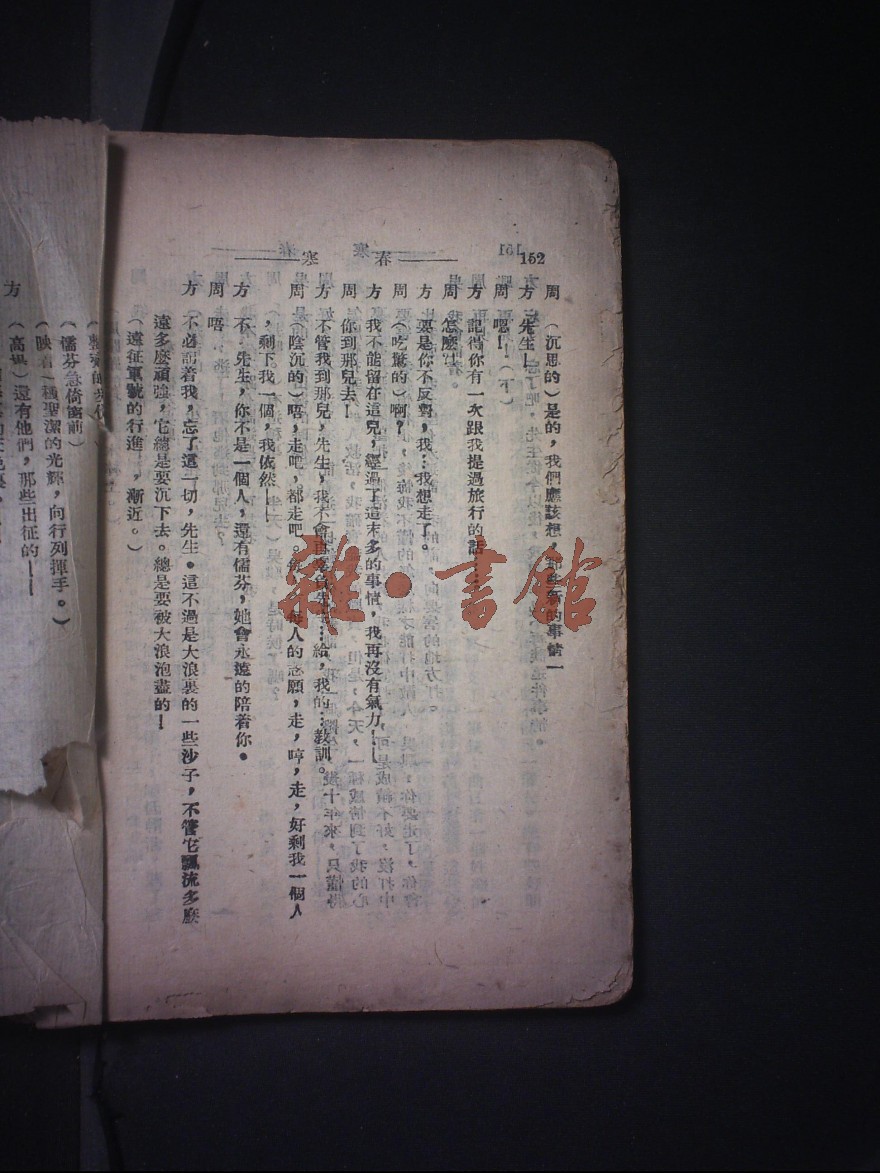 152
春寒
周 (沉思的)是的,我們應該想,那些新的事情—
方 先生!
周 嗯!(下)
方 記得你有一次跟我提過旅行的話……
周 怎麽!
方 要是你不反對,我…我想走了。
周 (吃驚的)啊?
方 我不能留在這兒,經過了這末多的事情,我再沒有氣力!—
周 你到那兒去!
方 不管我到那兒,先生,我不會 …給,我的…教訓。
周 (陰沉的)唔,走吧,都走吧。 每人的志願,走,哼,走,好剩我一個人
,剩下我一個,我依然!—
方 不,先生,你不是一個人,還有儒芬,她會永遠的陪着你。
周 唔
方 不必記着我,忘了這一切,先生。這不過是大浪裏的一些沙子,不管它飄流多麽
遠多麽頑強,它總是要沉下去。總是要被大浪泡盡的!
(遠征軍號的行進,漸近。)
(儒芬急倚窗前)
(映着一種聖潔的光輝,向行列揮手。)
方 (高興)還有他們,那些出征的!—
雜·書館